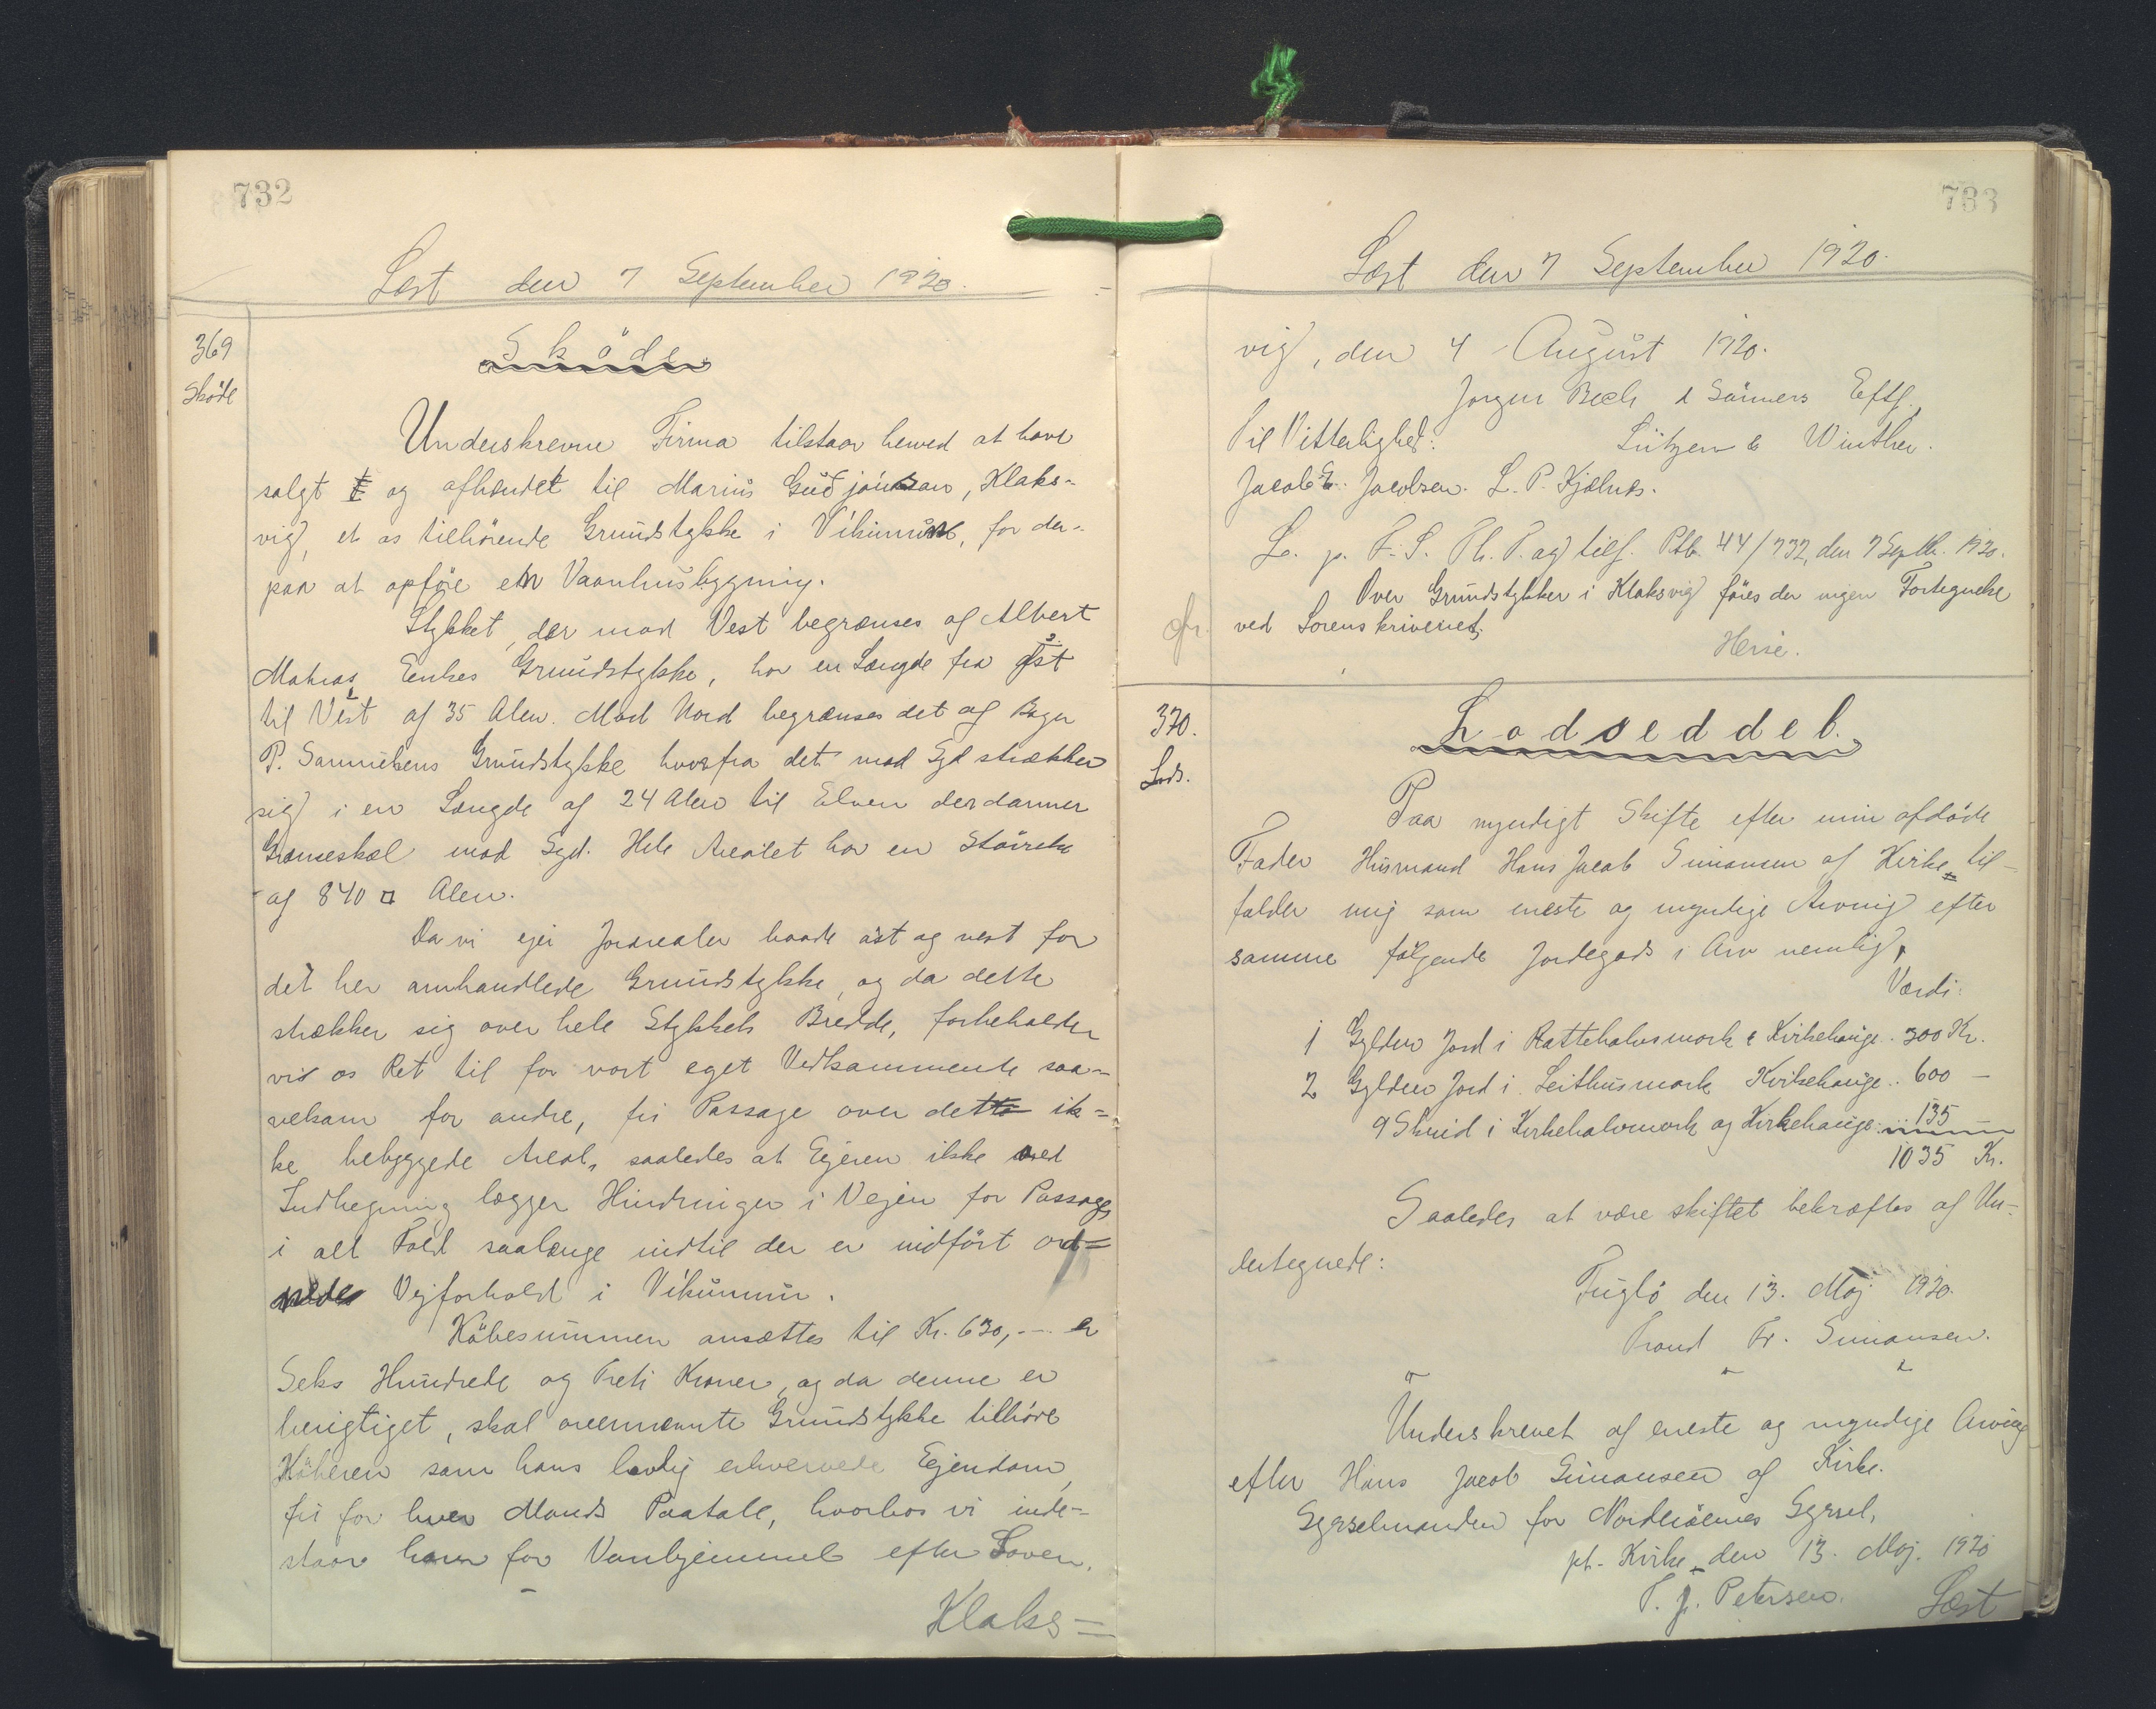 732
Læst den 7 September 1920.
369
Sköde
Sköde
Underskrevne Firma tilstaar herved at have
salgt t og afhændet til Marius Gudjónsson, Klaks-
vig, et os tilhörende Grundstykke i Vikunum, for der-
paa at opföre en Vaanhusbygning.
Stykket, der mod Vest begrænses af Albert
Mohras Enkes Grundstykke, har en Længde fra Öst
til Vest af 35 Alen. Mod Nord begrænses det af Bager
P. Samuelsens Grundstykke hvorfra det mod Syd strækker
sig i en Længde af 24 Alen til Elven der danner
Grænseskæl mod Syd. Hele Arealet har en Störrelse
af 840 □ Alen.
Da vi ejer Jordarealer baade öst og vest for
det her omhandlede Grundstykke, og da dette
strækker sig over hele Stykkets Bredde, forbeholder
vi os Ret til for vort eget Vedkommende saa-
velsom for andre, fri Passage over dette ik=
ke bebyggede Areal, saaledes at Ejeren ikke ved
Indhegning lægger Hindringer i Vejen for Passage,
i alt Fald saalænge indtil der er indfört ord=
nede Vejforhold i Vikunum.
Köbesummen ansættes til Kr. 630,-- er
Seks Hundrede og Treti Kroner, og da denne er
berigtiget, skal ovennævnte Grundstykke tilhöre
Köberen som hans lovlig erhvervede Ejendom,
fri for hver Mands Paatale, hvorhos vi inde-
staar ham for Vanhjemmel efter Loven.
Klaks=
733
Læst den 7 September 1920.
vig, den 4 August 1920.
Jørgen Bech & Sönners Eftf.
Til Vitterlighed: Lützen & Winther.
Jacob E. Jacobsen. L. P. Kjølnes.
L. p. F. S. Th. P. og tilf. Ptb. 44/732, den 7 Septbr. 1920.
Over Grundstykker i Klaksvig föres der ingen Fortegnelse
ved Sorenskriveriet.
Heise.
370.
Lods.
Lodseddel.
Paa myndigt Skifte efter min afdöde
Fader Husmand Hans Jacob Simonsen af Kirke til-
falder mig som eneste og myndige Arving efter
samme fölgende Jordegods i Arv nemlig,
Værdi:
1 Gylden Jord i Rattehalvsmork & Kirkehauge.. 300 Kr.
2 Gylden Jord i Leithusmork Kirkehauge.. 600 -
9 Skind i Kirkehalvmork og Kirkehauge.. 135
1035 Kr.
Saaledes at være skiftet bekræftes af Un-
dertegnede:
Fuglö den 13. Maj 1920.
Trond Fr. Simonsen.
Underskrevet af eneste og myndige Arving
efter Hans Jacob Simonsen af Kirke.
Sysselmanden for Norderöernes Syssel,
pt. Kirke den 13. Maj. 1920
T. J. Petersen.
Læst